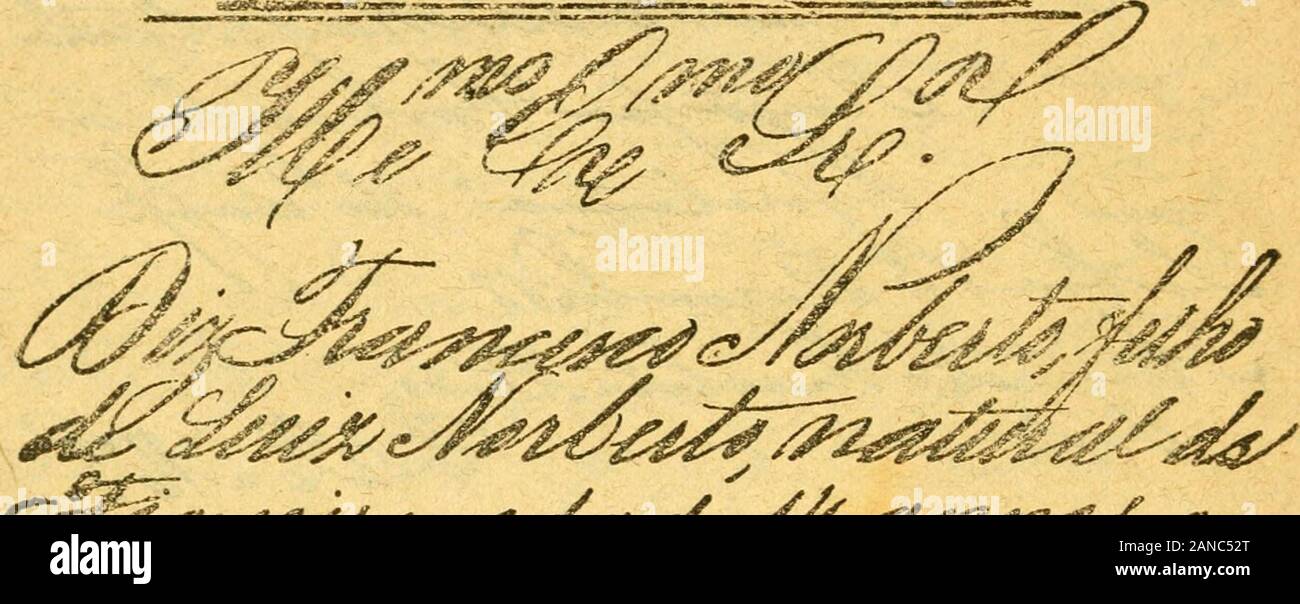 Illmo e Exmo Sr.
Diz Francisco Norberto, filho
de Luiz Norberto, natural da
14 annos
alamy
Image ID: 2ANC52T
www.alamy.com